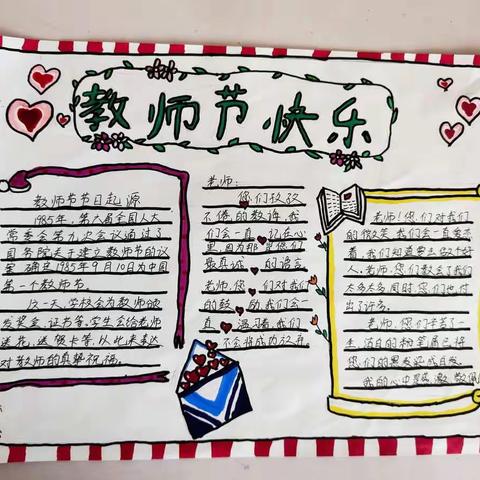 教师节快乐
教师节节日起源
1985年,第六届全国人大
常委会第九次会议通过了
国务院关于建立教师节的议
案,确定1985年9月10日为中国
第一个教师节。
这一天,学校会为教师颁
发奖金、证书等,学生会给老师
送花、送贺卡等,以此来表达
对教师的真挚祝福。
老师:
您们孜孜
不倦的教诲,我
们会一直记在心
里,因为那是您们
最真诚的语言
老师,您们对我们
的鼓励我们会一
直温习着,我们
不会将成功放弃
老师!您们对我们
的微笑我们会一直带
着,我们知道要去做个好
人,老师,您们教会了我们
太多太多同时,您们也付
出了许多。
老师,您们辛苦了一
生洁白的粉笔屑已将
您们的黑发染成白发
我的心中是感激敬佩